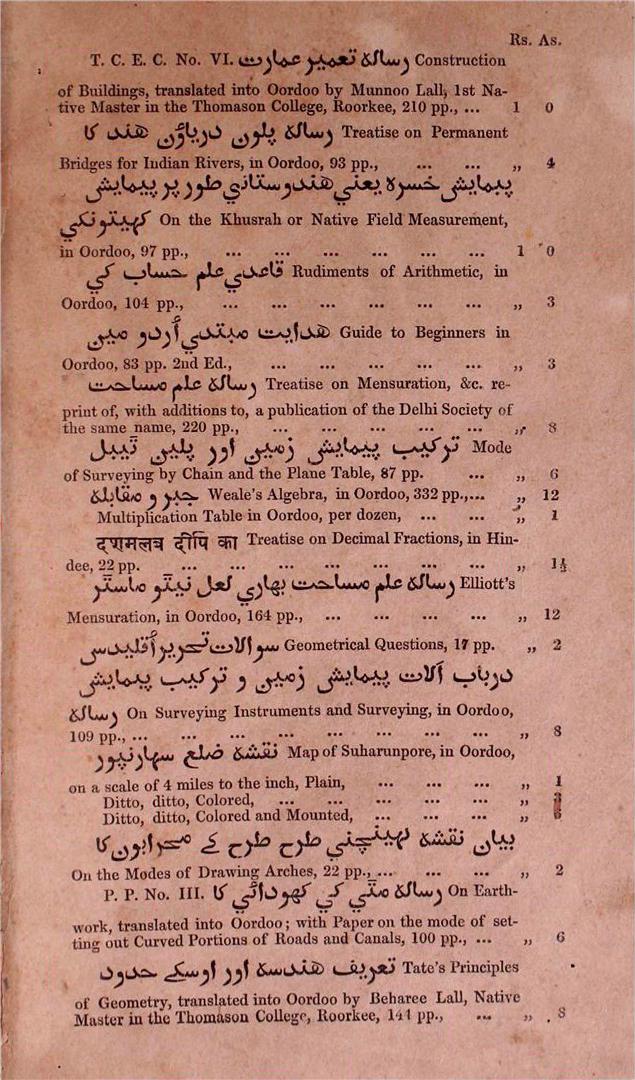 Rs. As.
T. C. E. C. No. VI. رسالۂ تعمیر عمارت Construction
of Buildings, translated into Oordoo by Munnoo Lall, 1st Na-
tive Master in the Thomason College, Roorkee, 210 pp., ... 1 0
رسالۂ پلون درياؤن هند کا Treatise on Permanent
Bridges for Indian Rivers, in Oordoo, 93 pp., ... ... „ 4
پیمایش خسرہ یعني هندوستاني طور پر پیمایش
کهیتونکي On the Khusrah or Native Field Measurement,
in Oordoo, 97 pp., ... ... ... ... ... ... 1 0
قاعدي علم حساب کي Rudiments of Arithmetic, in
Oordoo, 104 pp., ... ... ... ... ... ... „ 3
هدایت مبتدي اُردو مین Guide to Beginners in
Oordoo, 83 pp. 2nd Ed., ... ... ... ... ... „ 3
رسالۂ علم مساحت Treatise on Mensuration, &c. re-
print of, with additions to, a publication of the Delhi Society of
the same name, 220 pp., ... ... ... ... ... „ 8
ترکیب پیمایش زمین اور پلین ٹیبل Mode
of Surveying by Chain and the Plane Table, 87 pp. ... „ 6
جبر و مقابلۂ Weale's Algebra, in Oordoo, 332 pp.,... „ 12
Multiplication Table in Oordoo, per dozen, ... ... „ 1
दशमलव दीपि का Treatise on Decimal Fractions, in Hin-
dee, 22 pp. ... ... ... ... ... ... ... „ 1½
رسالۂ علم مساحت بهاري لعل نیٹو ماسٹر Elliott's
Mensuration, in Oordoo, 164 pp., ... ... ... ... „ 12
سوالات تحریر اُقلیدس Geometrical Questions, 17 pp. „ 2
درباب آلات پیمایش زمین و ترکیب پیمایش
رسالۂ On Surveying Instruments and Surveying, in Oordoo,
109 pp., ... ... ... ... ... ... ... ... „ 8
نقشۂ ضلع سهارنپور Map of Suharunpore, in Oordoo,
on a scale of 4 miles to the inch, Plain, ... ... ... „ 1
Ditto, ditto, Colored, ... ... ... ... ... „
Ditto, ditto, Colored and Mounted, ... ... ... „
بیان نقشۂ کهینچني طرح طرح کے محرابون کا
On the Modes of Drawing Arches, 22 pp.,... ... ... „ 2
P. P. No. III. رسالۂ مٹي کي کهودائي کا On Earth-
work, translated into Oordoo; with Paper on the mode of set-
ting out Curved Portions of Roads and Canals, 100 pp., ... „ 6
تعریف هندسۂ اور اوسکے حدود Tate's Principles
of Geometry, translated into Oordoo by Beharee Lall, Native
Master in the Thomason College, Roorkee, 144 pp., ... „ 8